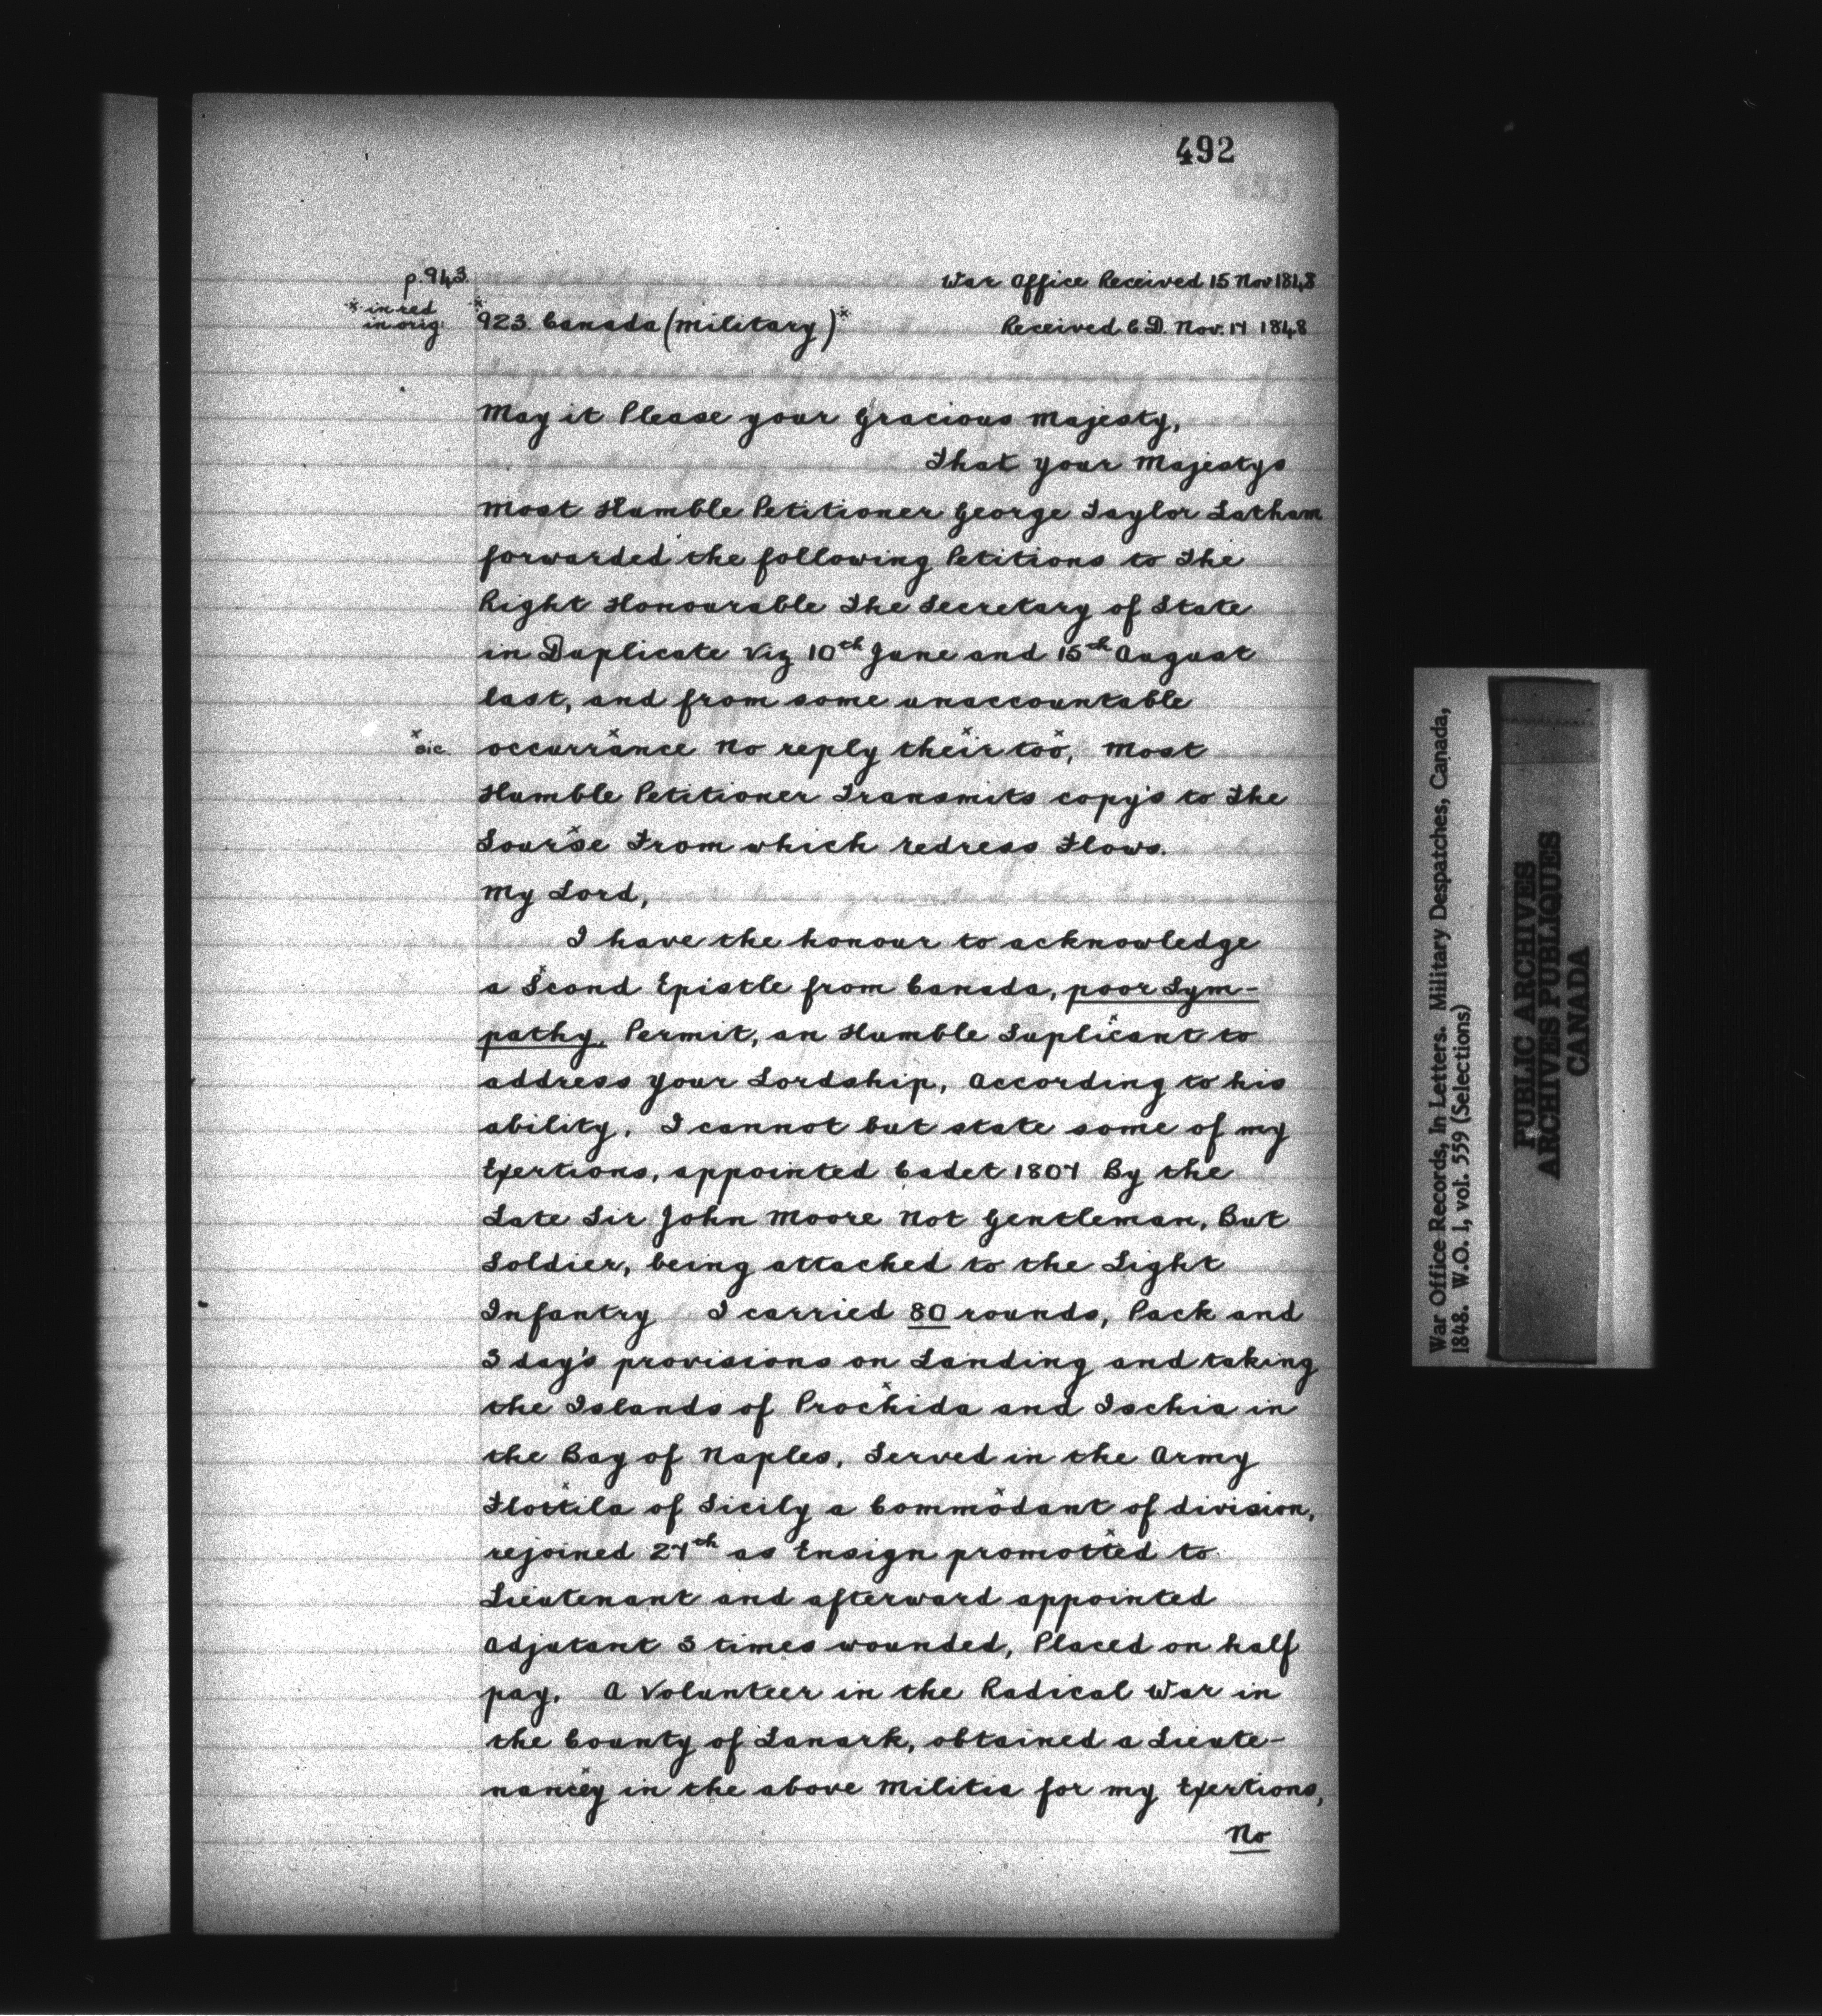 492
p. 943.
War Office Received 15 Nov 1848
* in red
in orig.
*923 Canada (Military)*
Received C.D. Nov. 17 1848
May it Please your Gracious Majesty,
That your Majestys
Most Humble Petitioner George Taylor Latham
forwarded the following Petitions to The
Right Honourable The Secretary of State
in Duplicate Viz 10th June and 15th August
last, and from some unaccountable
*sic. occurrance no reply their too, Most
Humble Petitioner Transmits copy's to The
Sourse From which redress Flows.
My Lord,
I have the honour to acknowledge
a Scond Epistle from Canada, poor Sym-
pathy, Permit, an Humble Suplicant to
address your Lordship, According to his
ability, I cannot but state some of my
Exertions, appointed Cadet 1807 By the
Late Sir John Moore Not Gentleman, But
Soldier, being attached to the Light
Infantry I carried 80 rounds, Pack and
3 day's provisions on Landing and taking
the Islands of Prochida and Ischia in
the Bay of Naples, Served in the Army
Flottila of Sicily a Commodant of division,
rejoined 27th as Ensign promotted to
Lieutenant and afterward appointed
Adjutant 3 times wounded, Placed on half
pay, A Volunteer in the Radical War in
the County of Lanark, obtained a Lieute-
nancey in the above Militia for my Exertions,
No
War Office Records, In Letters. Military Despatches, Canada,
1848. W.O. 1, vol. 559 (Selections)
PUBLIC ARCHIVES
ARCHIVES PUBLIQUES
CANADA